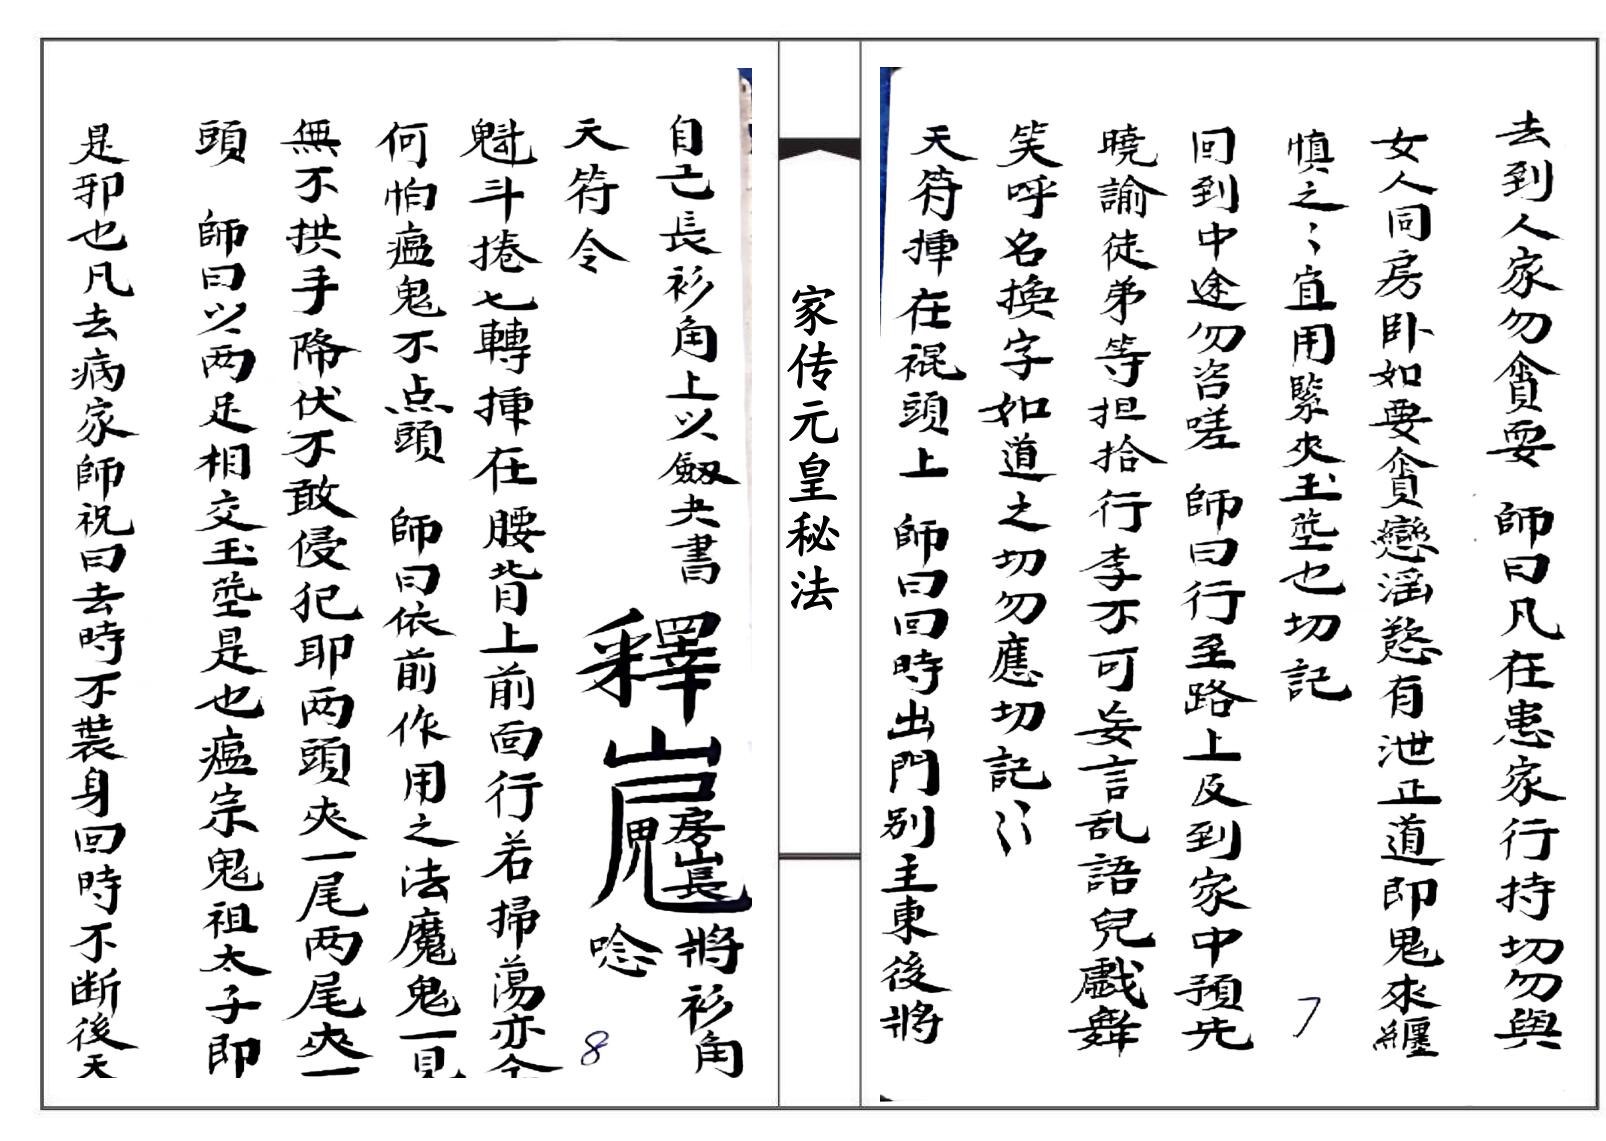 去到人家勿貪耍　師曰凡在患家行持切勿與
女人同房卧如要貪戀滛慾有泄正道即鬼來纏
慎之〻宜用緊夾玉莖也切記
回到中途勿咨嗟　師曰行至路上及到家中預先
曉諭徒弟等担拾行李不可妄言乱語兒戲舞
笑呼名換字如道之切勿應切記〻
天符揷在裩頭上　師曰回時出門别主東後將
7
家传元皇秘法
自己長衫角上以劔夬書釋　將衫角
天符令　唸
魁斗捲七轉揷在腰背上前面行若掃蕩亦令
何怕瘟鬼不点頭　師曰依前作用之法魔鬼一見
無不拱手降伏不敢侵犯耶两頭夾一尾两尾夾一
頭　師曰以两足相交玉莖是也瘟宗鬼祖太子即
是邪也凡去病家師祝曰去時不裝身回時不断後天
8